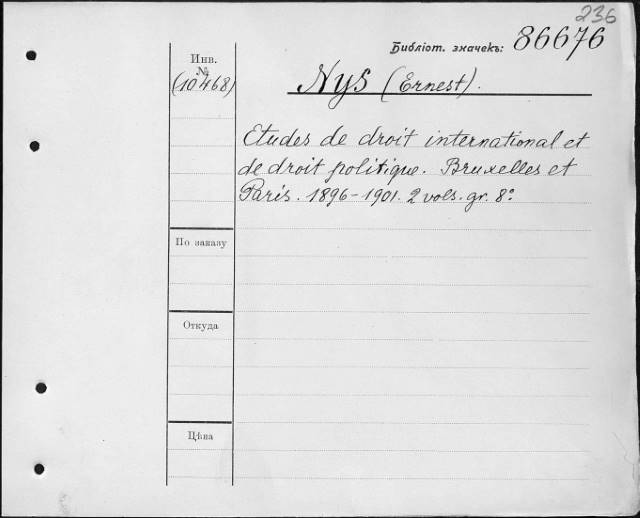 236
Библіот. значекъ: 86676
Инв.
№
(10468)
Nys (Ernest).
Etudes de droit international et
de droit politique. Bruxelles et
Paris. 1896-1901. 2 vols. gr. 8º
По заказу
Откуда
Цѣна